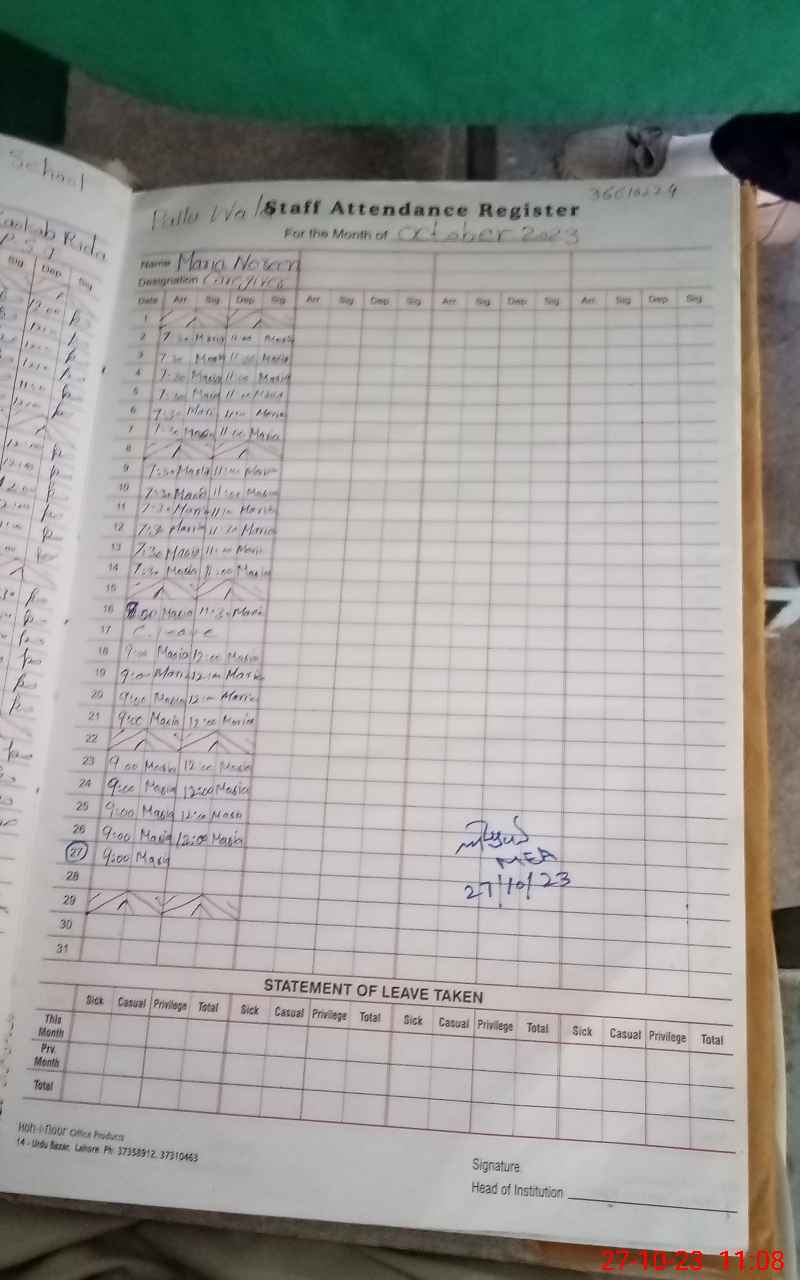 School
Kaokab Rida
P S T
Sig Dep Sig
36610224
Pallu Wal Staff Attendance Register
For the Month of October 2023
Name Maria Noseen
Designation Caregiver
Date Arr Sig Dep Sig Arr Sig Dep Sig Arr Sig Dep Sig Arr Sig Dep Sig
1
2 7:30 Maria 11:00 Maria
3 7:30 Maria 11:00 Maria
4 7:30 Maria 11:00 Maria
5 7:30 Maria 11:00 Maria
6 7:30 Maria 11:00 Maria
7 7:30 Maria 11:00 Maria
8
9 7:30 Maria 11:00 Maria
10 7:30 Maria 11:00 Maria
11 7:30 Maria 11:10 Maria
12 7:30 Maria 11:30 Maria
13 7:30 Maria 11:00 Maria
14 7:30 Maria 11:00 Maria
15
16 8:50 Maria 11:30 Maria
17 C. leave
18 9:00 Maria 12:00 Maria
19 9:00 Maria 12:00 Maria
20 9:00 Maria 12:00 Maria
21 9:00 Maria 12:00 Maria
22
23 9:00 Maria 12:00 Maria
24 9:00 Maria 12:00 Maria
25 9:00 Maria 12:00 Maria
26 9:00 Maria 12:00 Maria
27 9:00 Maria
28
29
30
31
MEA
27/10/23
STATEMENT OF LEAVE TAKEN
Sick Casual Privilege Total Sick Casual Privilege Total Sick Casual Privilege Total Sick Casual Privilege Total
This Month
Prv. Month
Total
Koh-i-Noor Office Products
14 - Urdu Bazar, Lahore. Ph: 37358912, 37310463
Signature.
Head of Institution
27-10-23 11:08